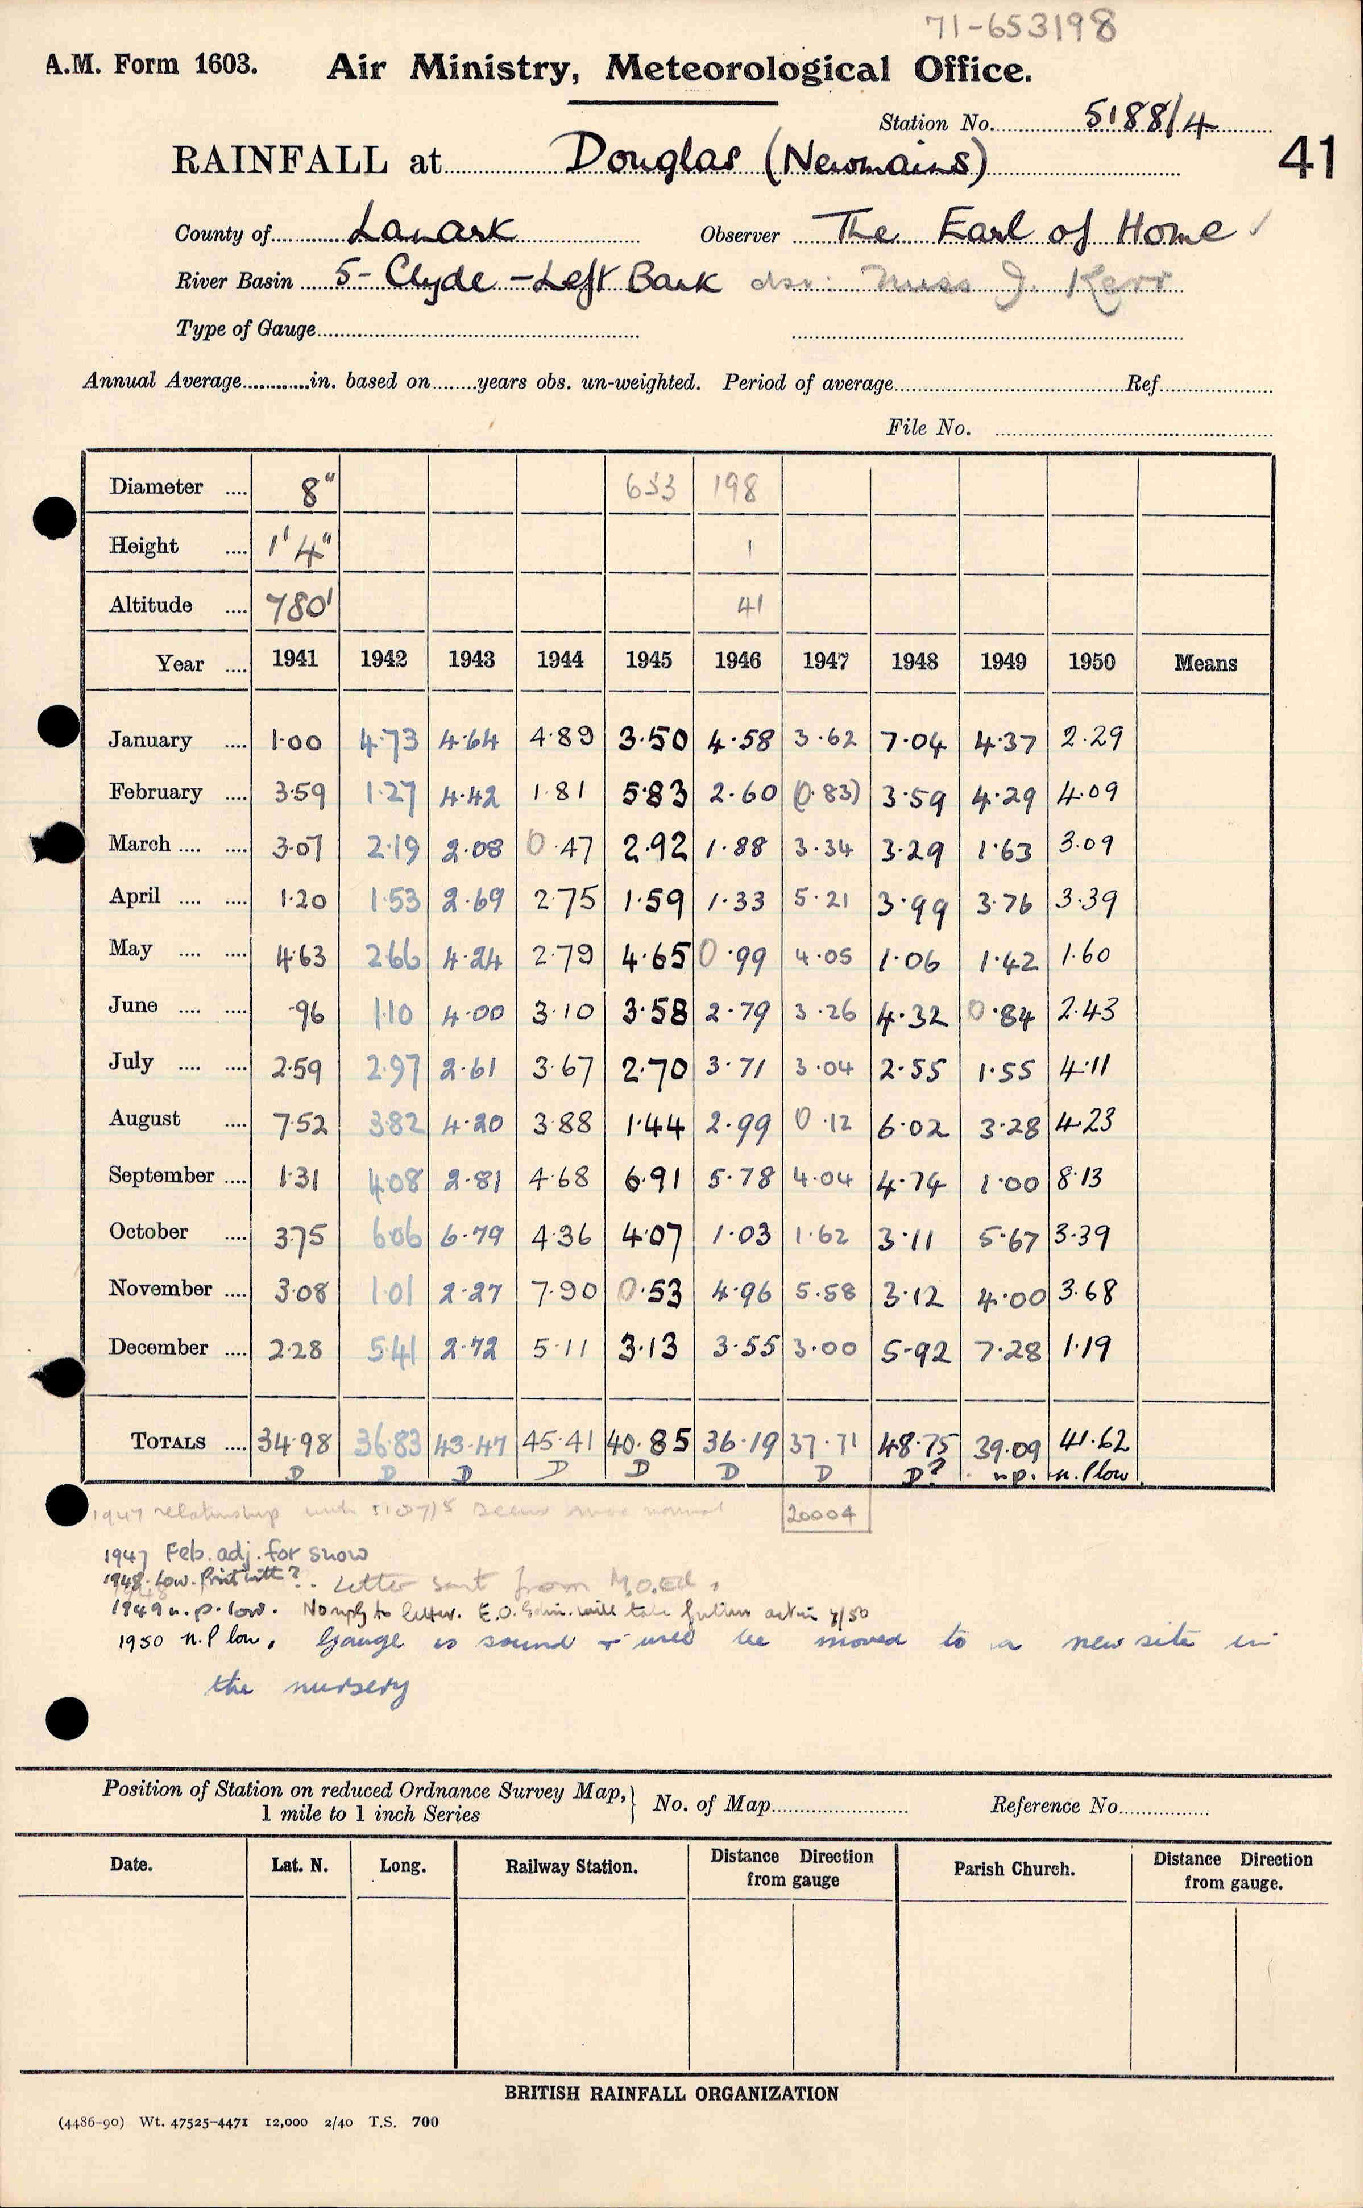 71-653198
A.M. Form 1603. Air Ministry, Meteorological Office.
Station No. 5188/4
RAINFALL at Douglas (Newmains) 41
County of Lanark Observer The Earl of Home ✓
River Basin 5 - Clyde - Left Bank Miss J. Kerr
Type of Gauge
Annual Average in. based on years obs. un-weighted. Period of average Ref.
File No.
Diameter .... 8" 653 198
Height .... 1' 4" 1
Altitude .... 780' 41
Year .... 1941 1942 1943 1944 1945 1946 1947 1948 1949 1950 Means
January .... 1.00 4.73 4.64 4.89 3.50 4.58 3.62 7.04 4.37 2.29
February .... 3.59 1.27 4.42 1.81 5.83 2.60 (0.83) 3.59 4.29 4.09
March .... .... 3.07 2.19 2.08 0.47 2.92 1.88 3.34 3.29 1.63 3.09
April .... .... 1.20 1.53 2.69 2.75 1.59 1.33 5.21 3.99 3.76 3.39
May .... .... 4.63 2.66 4.24 2.79 4.65 0.99 4.05 1.06 1.42 1.60
June .... .... .96 1.10 4.00 3.10 3.58 2.79 3.26 4.32 0.84 2.43
July .... .... 2.59 2.97 2.61 3.67 2.70 3.71 3.04 2.55 1.55 4.11
August .... 7.52 3.82 4.20 3.88 1.44 2.99 0.12 6.02 3.28 4.23
September .... 1.31 4.08 2.81 4.68 6.91 5.78 4.04 4.74 1.00 8.13
October .... 3.75 6.06 6.79 4.36 4.07 1.03 1.62 3.11 5.67 3.39
November .... 3.08 1.01 2.27 7.90 0.53 4.96 5.58 3.12 4.00 3.68
December .... 2.28 5.41 2.72 5.11 3.13 3.55 3.00 5.92 7.28 1.19
TOTALS .... 34.98 36.83 43.47 45.41 40.85 36.19 37.71 48.75 39.09 41.62
D D D D D D D D? n.p. n.p low
1947 relationship with normal 20004
1947 Feb. adj. for snow
1948. Low. Print with? Letter sent from M.O.Ed.
1949 n.p. low. No reply to letter. E.O. Edin. will take further
1950 n.p low. Gauge is sound + will be moved to a new site in
the nursery
Position of Station on reduced Ordnance Survey Map, 1 mile to 1 inch Series } No. of Map Reference No.
Date. Lat. N. Long. Railway Station. Distance Direction from gauge Parish Church. Distance Direction from gauge.
BRITISH RAINFALL ORGANIZATION
(4486-90) Wt. 47525-4471 12,000 2/40 T.S. 700